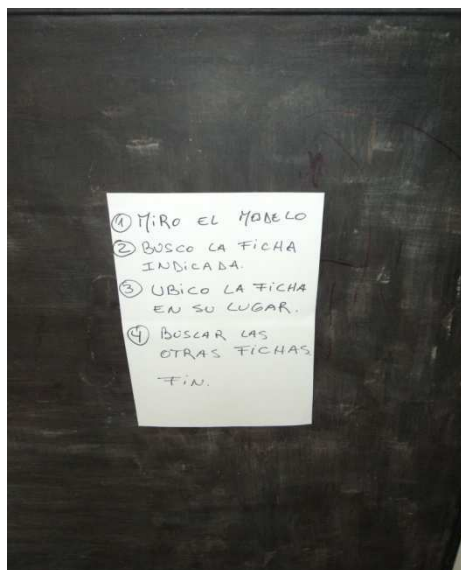 ① MiRO EL MODELO
② BUSCO LA FICHA
INDICADA.
③ UBICO LA FICHA
EN SU LUGAR.
④ BUSCAR LAS
OTRAS FICHAS.
FIN.